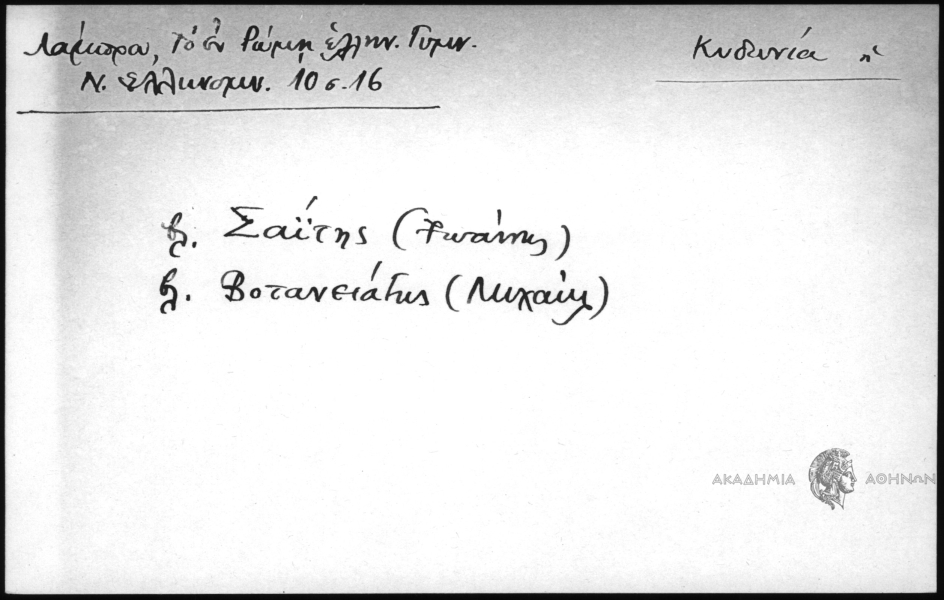 Λάμπρου, Τὸ ἐν Ῥώμῃ ἑλλην. Γυμν.
Ν. Ἑλληνομν. 10 σ. 16
Κυδωνία ἡ
βλ. Σαΐτης (Ἰωάννης)
βλ. Βοτανειάτης (Μιχαήλ)
ΑΚΑΔΗΜΙΑ ΑΘΗΝΩΝ